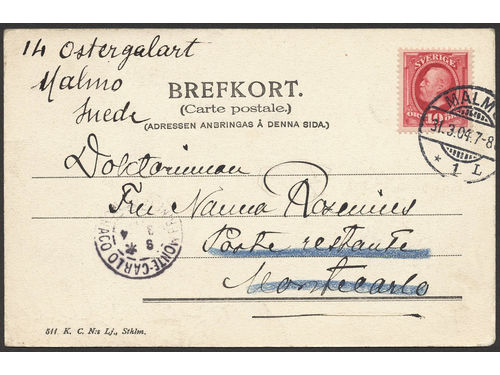 14 Ostergalart
Malmo
Suede
SVERIGE
ÖRE 10
MALMÖ
31.3.04.7-8
* 1 L
BREFKORT.
(Carte postale.)
(ADRESSEN ANBRINGAS Å DENNA SIDA.)
Doktorinnan
Fru Nanna Rosenius
Poste restante
Montecarlo
MONTE-CARLO
511. K. C. N:s Lj., Sthlm.